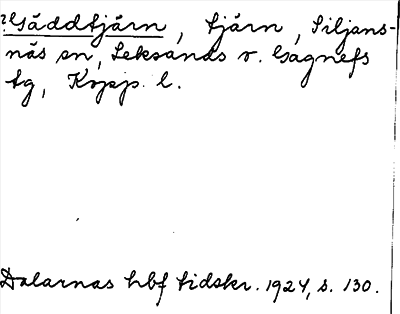 ?Gäddtjärn, tjärn, Siljans-
näs sn, Leksands o. Gagnefs
tg, Kopp. l.
Dalarnas hbf tidskr. 1924, s. 130.